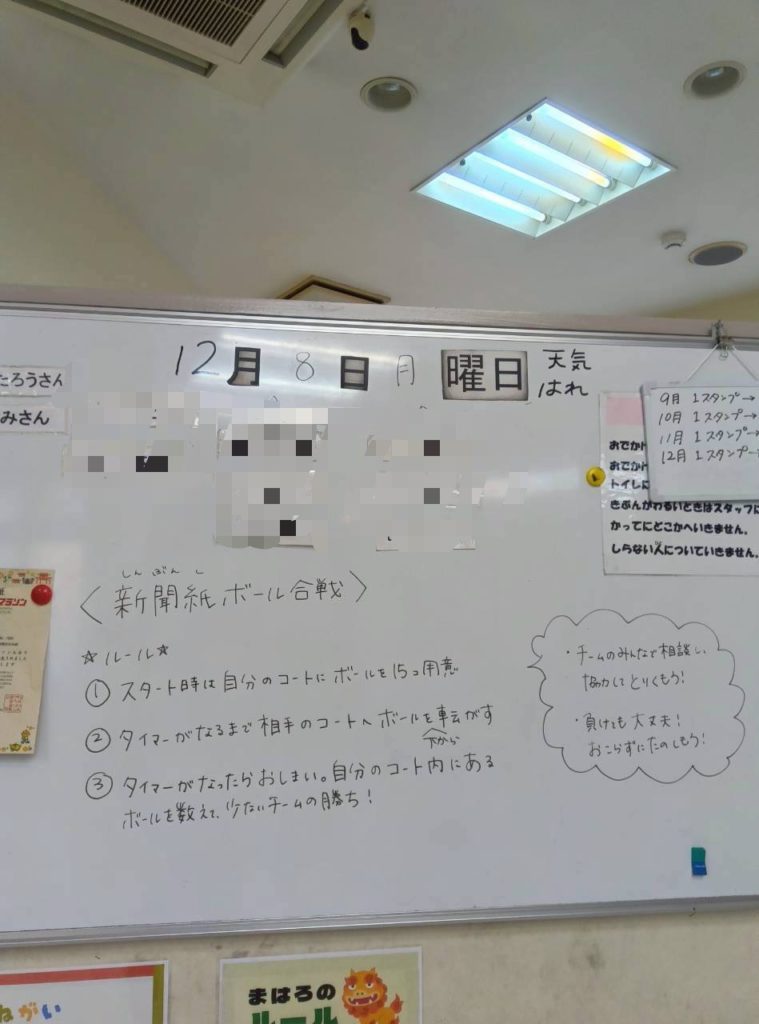 12月 8日 月曜日 天気
はれ
たろうさん
みさん
9月 1スタンプ→
10月 1スタンプ→
11月 1スタンプ→
12月 1スタンプ→
おでかけ
おでかけ
トイレに
きぶんがわるいときはスタッフに
かってにどこかへいきません。
しらない人についていきません。
しんぶんし
〈新聞紙ボール合戦〉
☆ルール☆
① スタート時は自分のコートにボールを15コ用意
② タイマーがなるまで相手のコートへボールを転がす
下から
③ タイマーがなったらおしまい。自分のコート内にある
ボールを数えて、少ないチームの勝ち!
・チームのみんなで相談し、
協力してとりくもう!
・負けても大丈夫!
おこらずにたのしもう!
マラソン
ねがい
まはろの
ルール